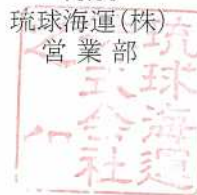 琉球海運(株)
営業部
琉球海運
株式会社